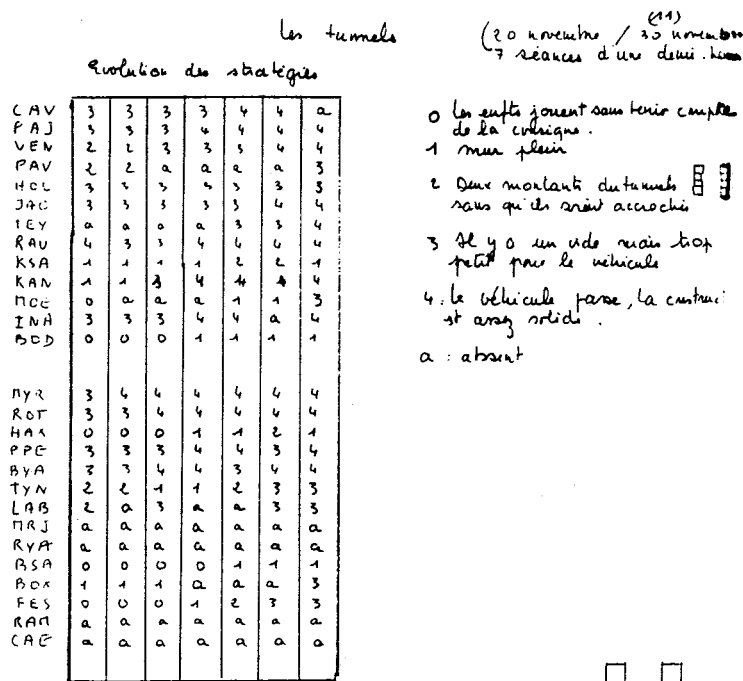 les tunnels
(20 novembre / 30 novembre
(11)
7 séances d'une demi-heure
Evolution des stratégies
CAV 3 3 3 3 4 4 a
PAJ 3 3 3 4 4 4 4
VEN 2 2 3 3 3 4 4
PAV 2 2 a a a a 3
HCL 3 3 3 3 3 3 3
JAC 3 3 3 3 3 4 4
TEY a a a a 3 3 4
RAV 4 3 3 4 4 4 4
KSA 1 1 1 1 2 2 1
KAN 1 1 3 4 4 4 4
MCE 0 a a a 1 1 3
INA 3 3 3 4 4 a 4
BOD 0 0 0 1 1 1 1
MYR 3 4 4 4 4 4 4
ROT 3 3 4 4 4 4 4
HAK 0 0 0 1 1 2 1
PPE 3 3 3 4 4 3 4
BYA 3 3 4 4 3 4 4
TYN 2 2 1 1 2 3 3
LAB 2 a 3 a a 3 3
MRJ a a a a a a a
RYA a a a a a a a
BSA 0 0 0 0 1 1 1
BOX 1 1 1 a a a 3
FES 0 0 0 1 2 3 3
RAM a a a a a a a
CAE a a a a a a a
0 les enfts jouent sans tenir compte
de la consigne.
1 mur plein
2 Deux montants du tunnel
sans qu'ils soient accrochés
3 Il y a un vide mais trop
petit pour le véhicule
4. le véhicule passe, la construc
st assez solide.
a : absent